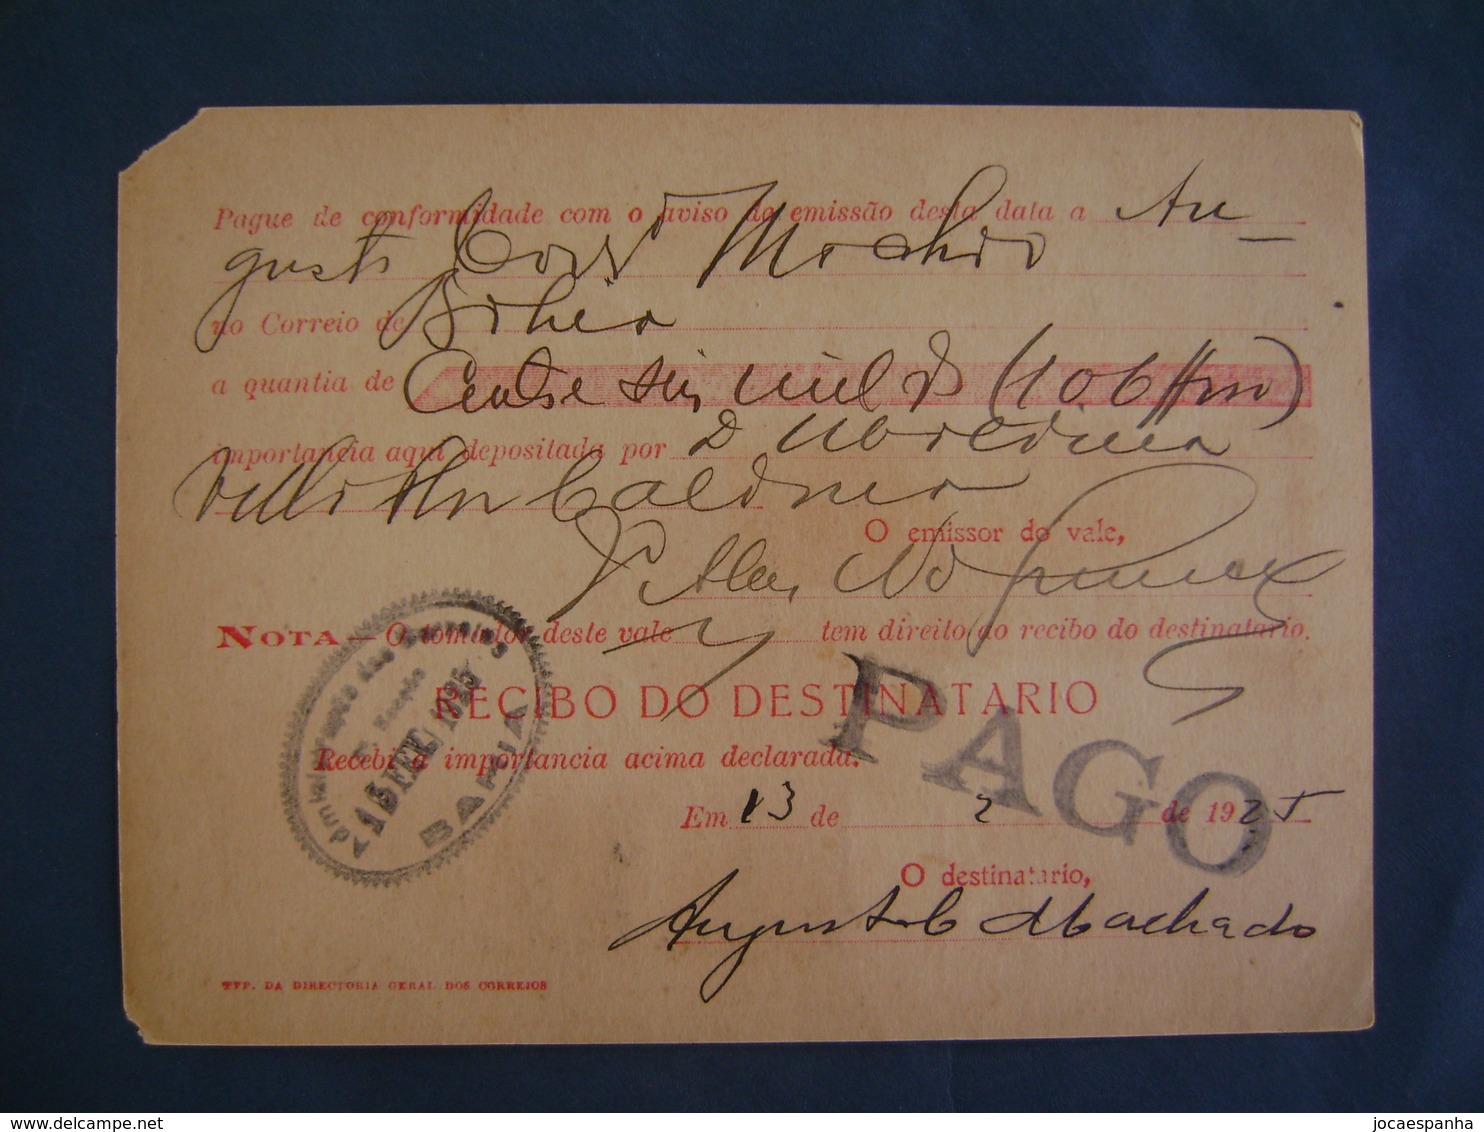 Pague de conformidade com o aviso de emissão desta data a Au-
gusto Machado
no Correio de Bahia
a quantia de Cento e seis mil rs (106$000)
importancia aqui depositada por D
Caldas
O emissor do vale,
NOTA — O tomador deste vale tem direito ao recibo do destinatario.
RECIBO DO DESTINATARIO
Recebi a importancia acima declarada.
Em 13 de 2 de 1925
O destinatario,
Augusto C Machado
PAGO
Administração dos Correios
Secção
13 FEV 1925
BAHIA
TYP. DA DIRECTORIA GERAL DOS CORREIOS
delcampe.net
jocaespanha